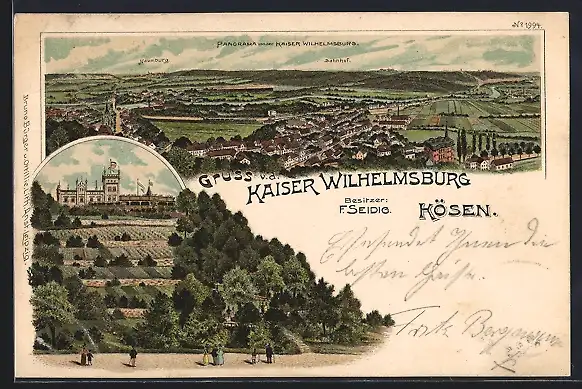 No 1994.
PANORAMA von der KAISER WILHELMSBURG.
Naumburg
Bahnhof.
GRUSS v.d.
KAISER WILHELMSBURG
Besitzer:
F. SEIDIG.
KÖSEN.
Es sendet Ihnen die
besten Grüße.